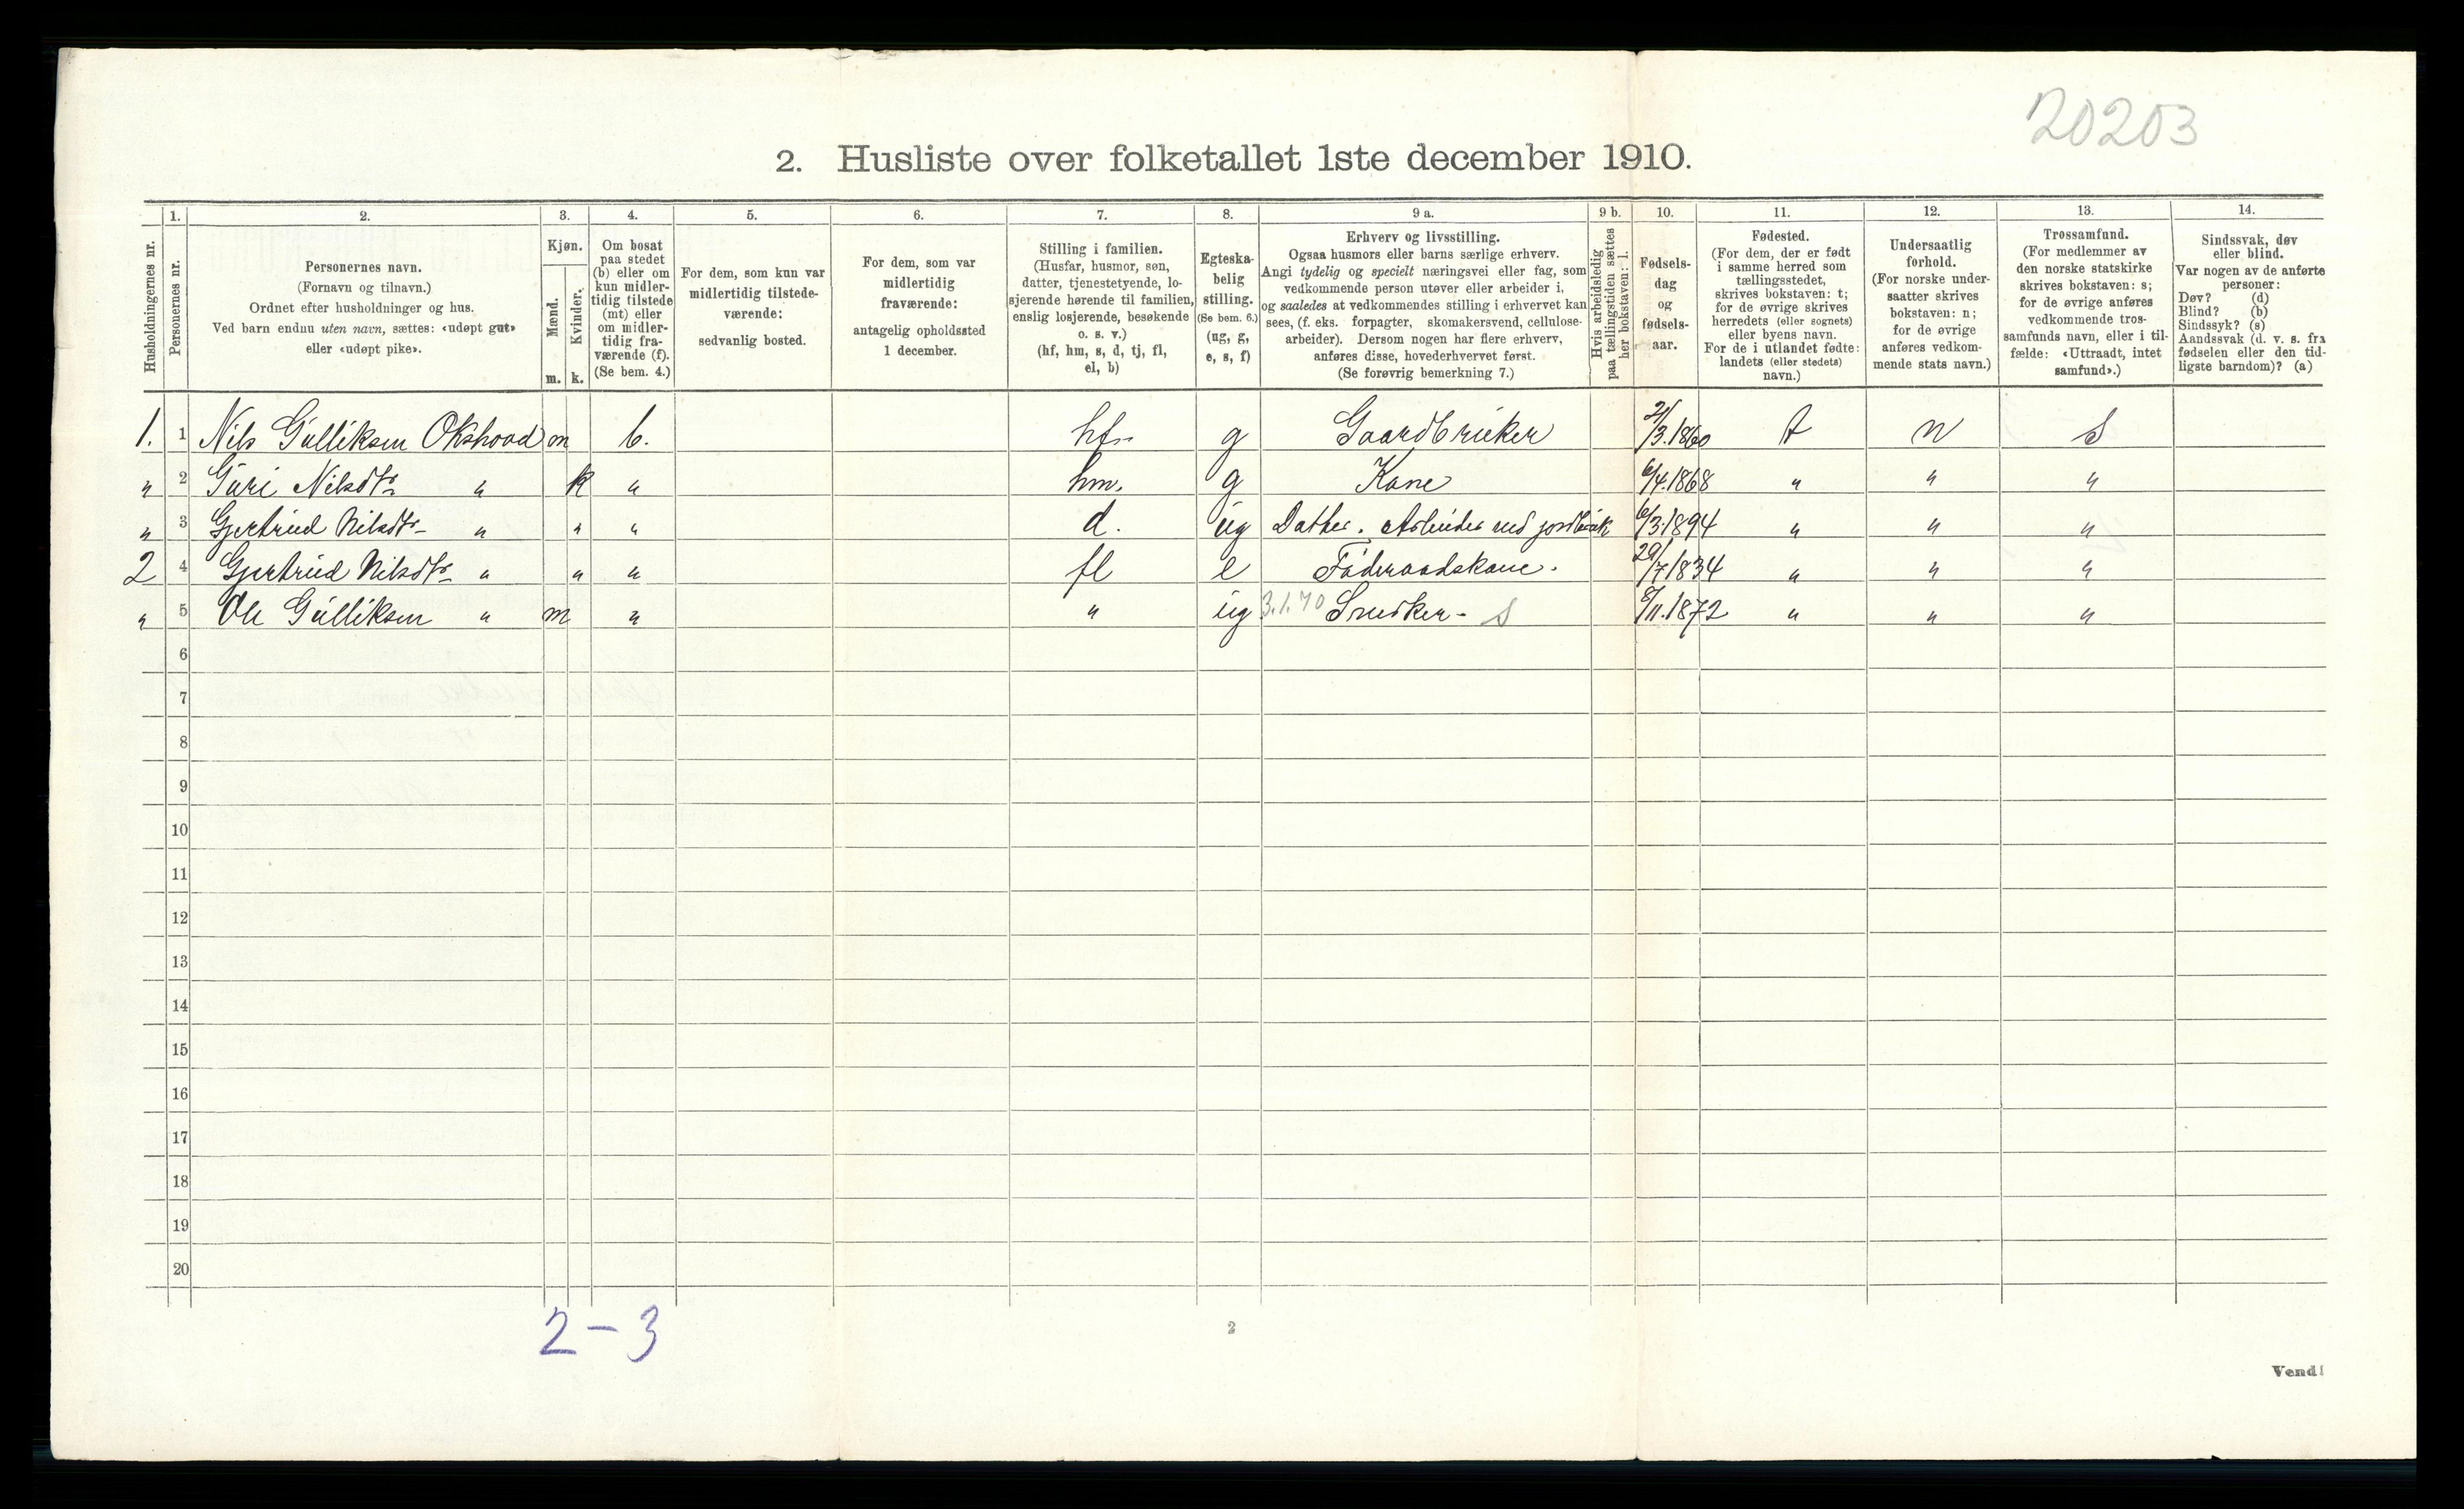 20203
2. Husliste over folketallet 1ste december 1910.
Husholdningernes nr.
1.
Personernes nr.
2.
Personernes navn.
(Fornavn og tilnavn.)
Ordnet efter husholdninger og hus.
Ved barn endnu uten navn, sættes: «udøpt gut»
eller «udøpt pike».
3.
Kjøn.
Mænd.
Kvinder.
m.
k.
4.
Om bosat
paa stedet
(b) eller om
kun midler-
tidig tilstede
(mt) eller
om midler-
tidig fra-
værende (f).
(Se bem. 4.)
5.
For dem, som kun var
midlertidig tilstede-
værende:
sedvanlig bosted.
6.
For dem, som var
midlertidig
fraværende:
antagelig opholdssted
1 december.
7.
Stilling i familien.
(Husfar, husmor, søn,
datter, tjenestetyende, lo-
sjerende hørende til familien,
enslig losjerende, besøkende
o. s. v.)
(hf, hm, s, d, tj, fl,
el, b)
8.
Egteska-
belig
stilling.
(Se bem. 6.)
(ug, g,
e, s, f)
9 a.
Erhverv og livsstilling.
Ogsaa husmors eller barns særlige erhverv.
Angi tydelig og specielt næringsvei eller fag, som
vedkommende person utøver eller arbeider i,
og saaledes at vedkommendes stilling i erhvervet kan
sees, (f. eks. forpagter, skomakersvend, cellulose-
arbeider). Dersom nogen har flere erhverv,
anføres disse, hovederhvervet først.
(Se forøvrig bemerkning 7.)
9 b.
Hvis arbeidsledig
paa tællingstiden sættes
her bokstaven: l.
10.
Fødsels-
dag
og
fødsels-
aar.
11.
Fødested.
(For dem, der er født
i samme herred som
tællingsstedet,
skrives bokstaven: t;
for de øvrige skrives
herredets (eller sognets)
eller byens navn.
For de i utlandet fødte:
landets (eller stedets)
navn.)
12.
Undersaatlig
forhold.
(For norske under-
saatter skrives
bokstaven: n;
for de øvrige
anføres vedkom-
mende stats navn.)
13.
Trossamfund.
(For medlemmer av
den norske statskirke
skrives bokstaven: s;
for de øvrige anføres
vedkommende tros-
samfunds navn, eller i til-
fælde: «Uttraadt, intet
samfund».)
14.
Sindssvak, døv
eller blind.
Var nogen av de anførte
personer:
Døv? (d)
Blind? (b)
Sindssyk? (s)
Aandssvak (d. v. s. fra
fødselen eller den tid-
ligste barndom)? (a)
1. 1 Nils Gulliksen Okshovd m b. hf. g Gaardbruker 21/3.1860 t n s
" 2 Guri Nilsdtr " k " hm. g Kone 6/4.1868 " " "
" 3 Gjertrud Nilsdtr " " " d. ug Datter. Arbeider ved jordbruk 6/3.1894 " " "
2 4 Gjertrud Nilsdtr " " " fl e Føderaadskone. 29/7 1834 " " "
" 5 Ole Gulliksen " m " " ug 3.1.70 Snedker - s 8/11.1872 " " "
6
7
8
9
10
11
12
13
14
15
16
17
18
19
20
2 - 3
2
Vend!